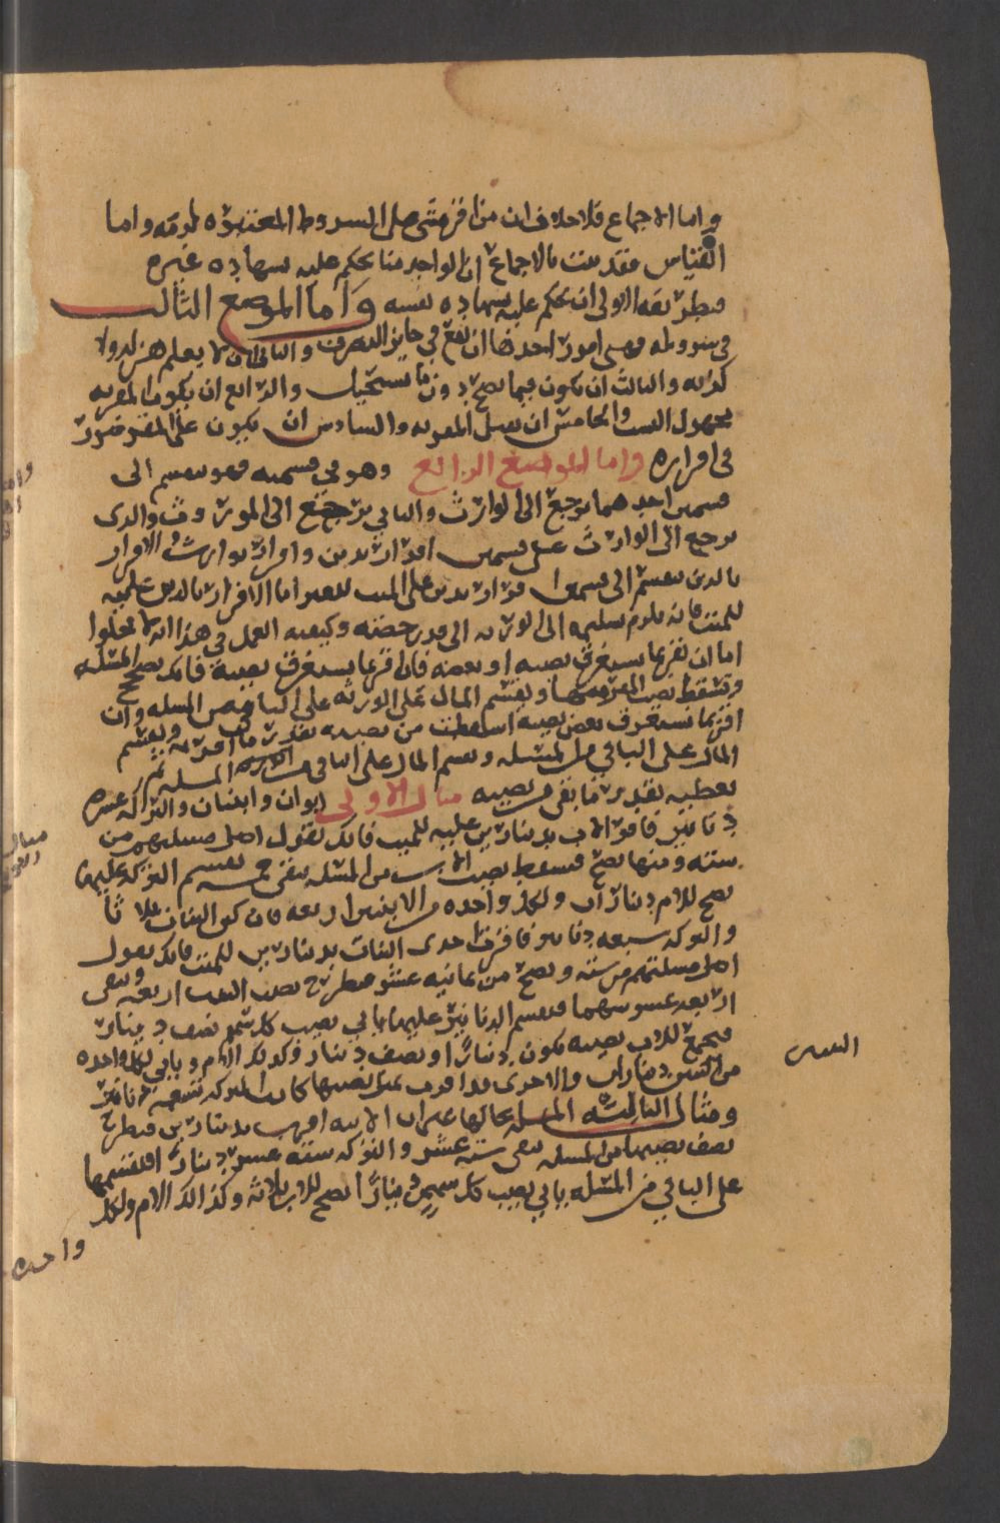 واما الاجماع فلا خلاف ان من اقر متى حصلت الشروط المعتبره لزمه واما
القياس فقد ثبت بالاجماع ان الواحد منا يحكم عليه بشهاده غيره
فبطريقه الاولى ان يحكم عليه بشهاده نفسه واما الموضع الثالث
في شروطه فهي امور احدها ان يقع في جايز التصرف والثاني ان لا يعلم هزله ولا
كذبه والثالث ان يكون فيما يصح دون ما يستحيل والرابع ان يكون المقر به
مجهول النسب والخامس ان يقبل المقر به والسادس ان يكون على المقر ضرر
في اقراره واما الموضع الرابع وهو في قسمته فهو ينقسم الى
قسمين احدهما يرجع الى الوارث والثاني يرجع الى الموروث والذي
يرجع الى الوارث على قسمين اقرار بدين واقرار بوارث والاقرار
بالدين ينقسم الى قسمين اقرار بدين على الميت للغير اما الاقرار بالدين عليه
للميت فانه يلزم تسليمه الى الورثه الى قدر حصته وكيفيه العمل في هذا انه لا يخلوا
اما ان يقر بما يستغرق نصيبه او بعضه فان اقر بما يستغرق نصيبه فانك تصحح المسله
وتسقط نصيب المقر منها وتقسم المال على الورثه على الباقي من المسله وان
اقر بما يستغرق بعض نصيبه اسقطت من نصيبه بقدر ما اقر به وتقسم
المال على الباقي من المسله وتقسم المال على الباقي من المسله ثم
تعطيه بقدر ما بقي من نصيبه مثال الاولى ابوان وابنتان والتركه عشره
دنانير فاقر الاب بدينارين عليه للميت فانك تقول اصل مسلتهم من
سته ومنها تصح فتسقط نصيب الاب من المسله تبقى خمسه تقسم التركه عليها
يصح للام ديناران ولكل واحده من الابنتين اربعه فان كن البنات ثلاثا
والتركه سبعه دنانير فاقرت احدى البنات بدينارين للميت فانك تقول
اصل مسلتهم من سته وتصح من ثمانيه عشر فطرح نصيب البنت اربعه وتبقى
اربعه عشر سهما فتقسم الدنانير عليها ياتي نصيب كل سهم نصف دينار
فتجمع للاب نصيبه يكون دينارا ونصف دينار وكذلك الام وياتي لكل واحده
من البنتين ديناران والاخرى قد اقرت بمثل نصيبها كانت التركه تسعه دنانير
ومثال الثالثه المسله بحالها غير ان الابنه اقرت بدينارين فتطرح
نصف نصيبها من المسله تبقى سته عشر والتركه سته عشر دينارا فتقسمها
على الباقي من المسله ياتي نصيب كل سهم دينارا يصح للاب ثلاثه وكذالك الام ولكل
واحده